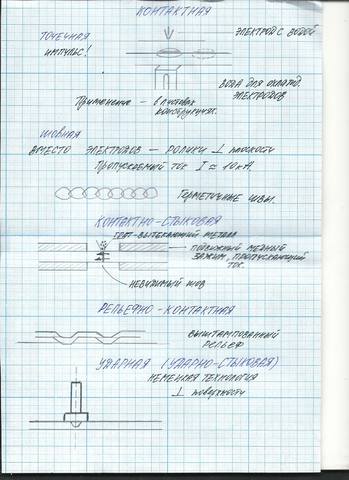 КОНТАКТНАЯ
ТОЧЕЧНАЯ
ИМПУЛЬС!
ЭЛЕКТРОД С ВОДОЙ
ВОДА ДЛЯ ОХЛАЖД.
ЭЛЕКТРОДОВ
Применение – в листовых
конструкциях.
ШОВНАЯ
ВМЕСТО ЭЛЕКТРОДОВ – РОЛИКИ ⊥ плоскости
Пропускаемый ток I ≈ 10 кА.
Герметичные швы.
КОНТАКТНО-СТЫКОВАЯ
ГРАТ-ВЫТЕКАЮЩИЙ МЕТАЛЛ
ПОДВИЖНЫЙ МЕДНЫЙ
ЗАЖИМ, ПРОПУСКАЮЩИЙ
ТОК.
НЕВИДИМЫЙ ШОВ
РЕЛЬЕФНО-КОНТАКТНАЯ
ВЫШТАМПОВАННЫЙ
РЕЛЬЕФ
УДАРНАЯ (УДАРНО-СТЫКОВАЯ)
НЕМЕЦКАЯ ТЕХНОЛОГИЯ
⊥ поверхности